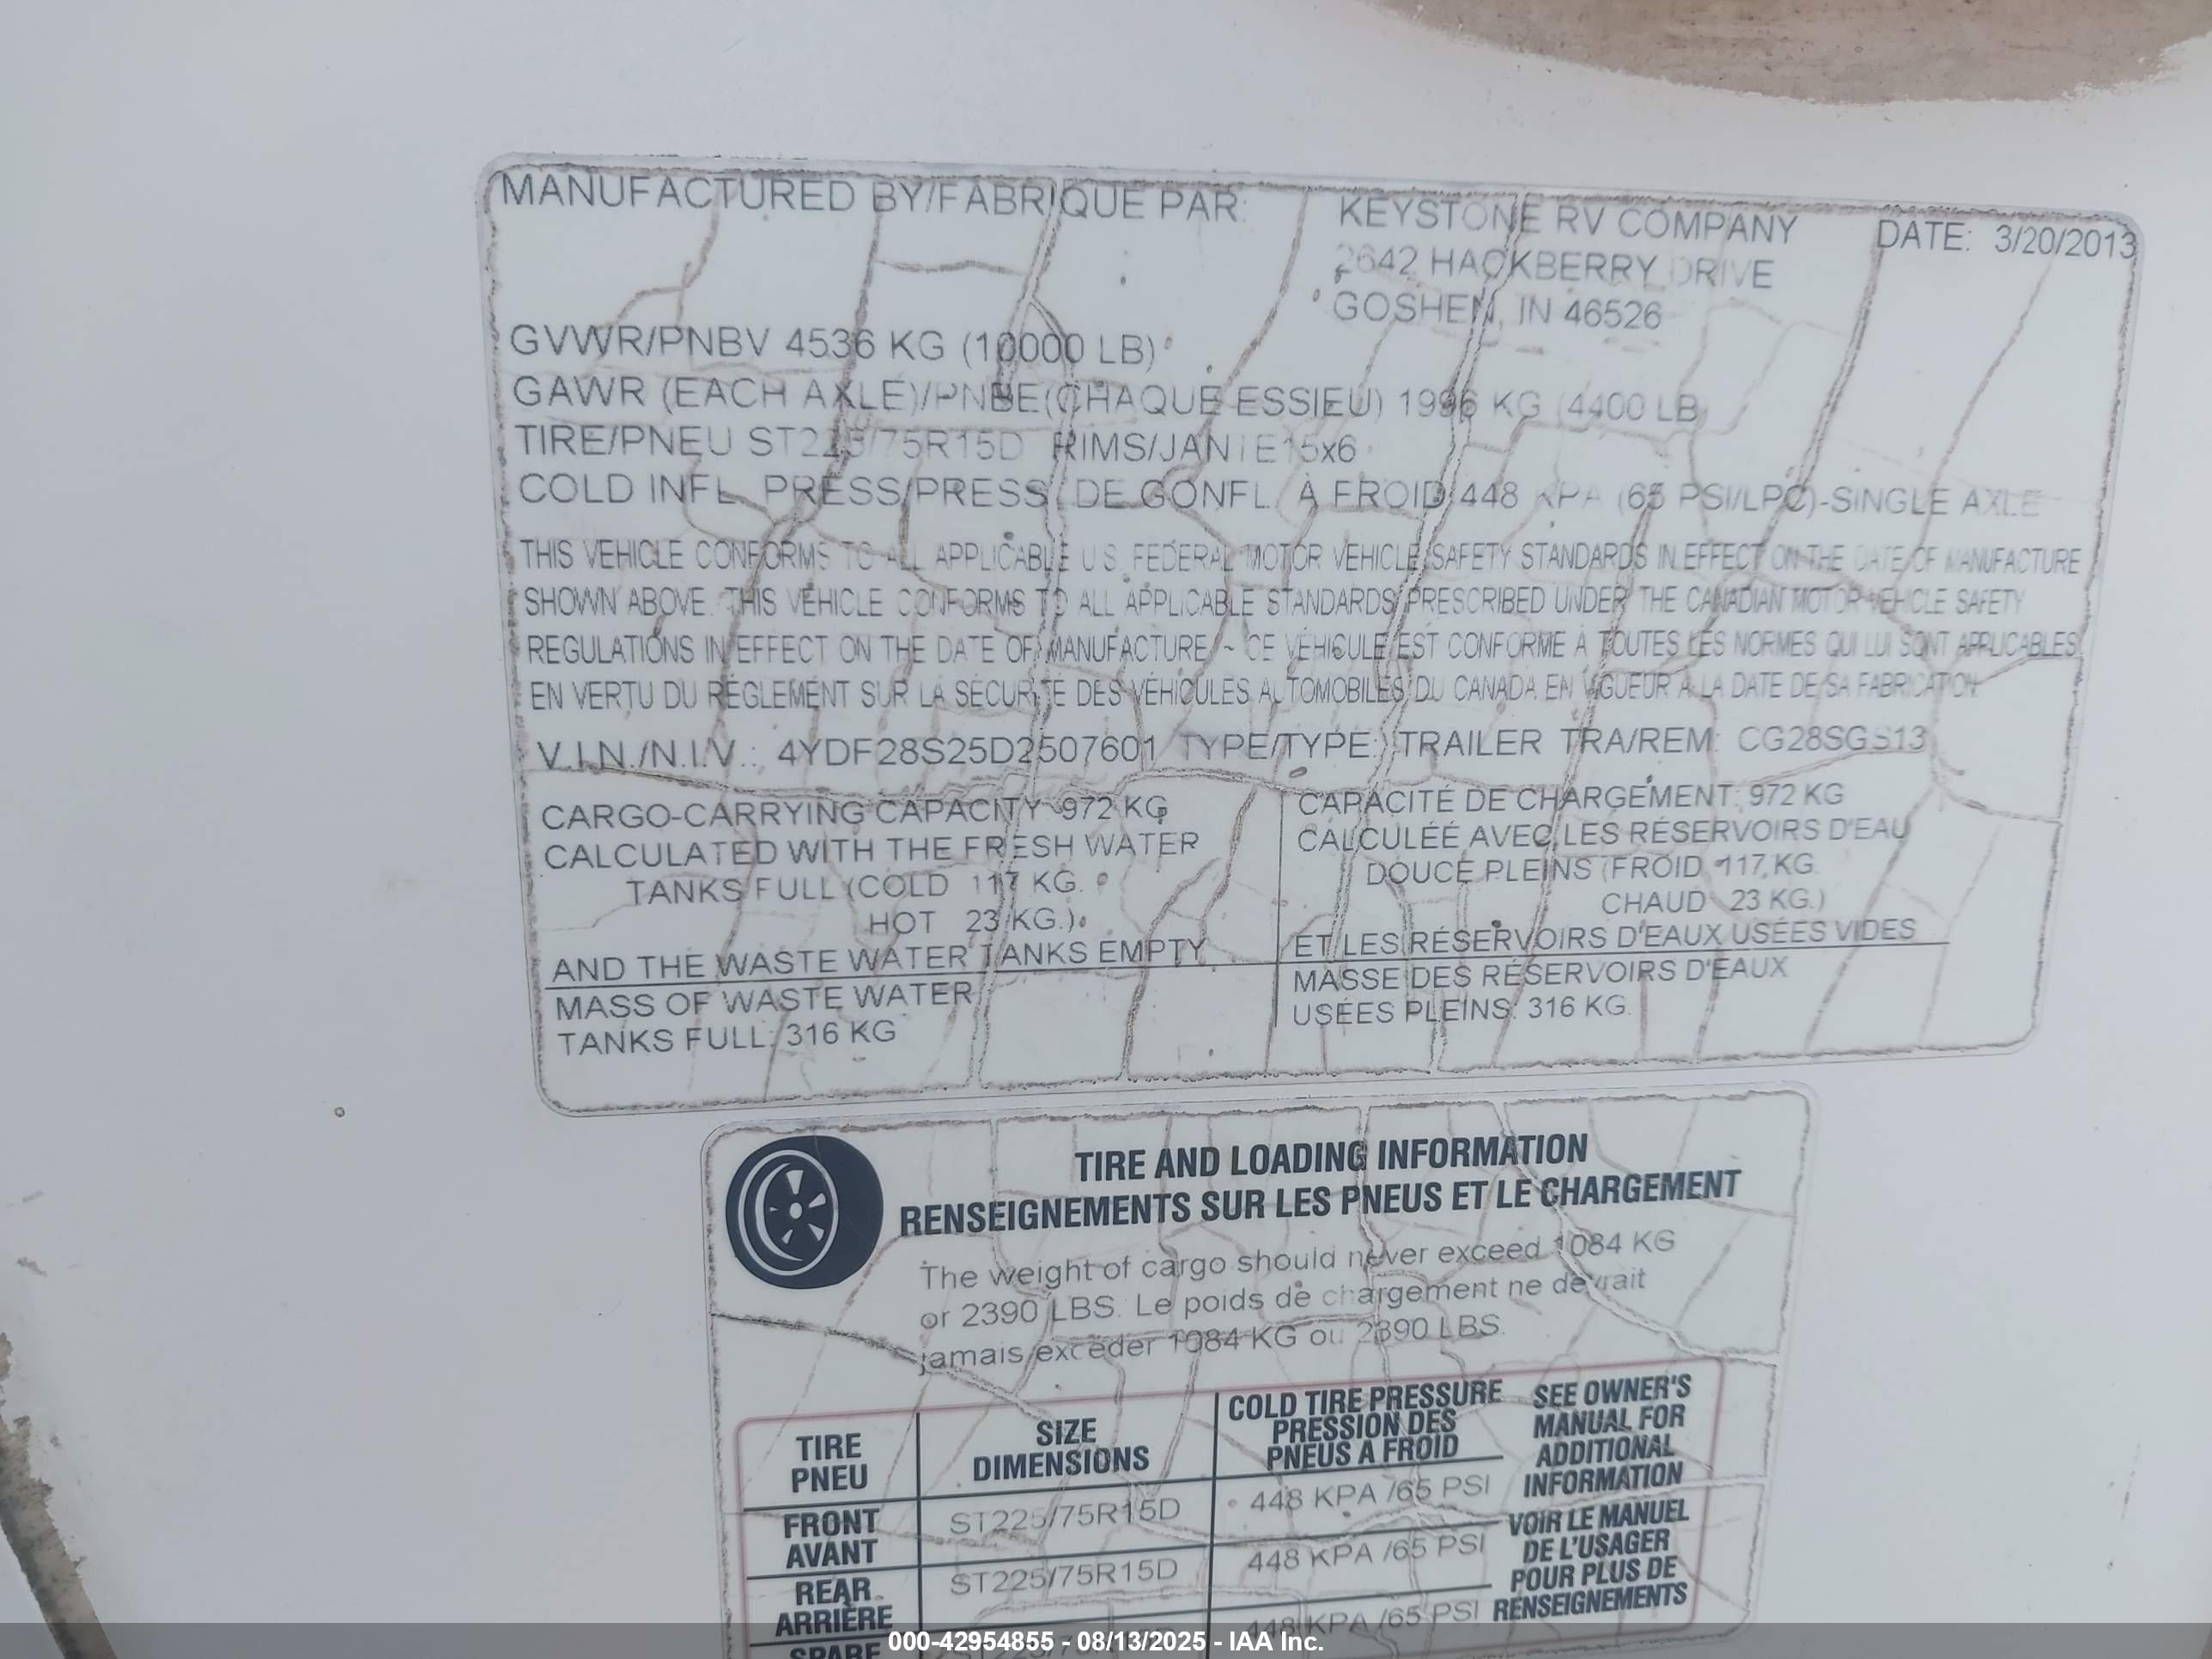 MANUFACTURED BY/FABRIQUE PAR:
KEYSTONE RV COMPANY
DATE: 3/20/2013
2642 HACKBERRY DRIVE
GOSHEN, IN 46526
GVWR/PNBV 4536 KG (10000 LB)
GAWR (EACH AXLE)/PNBE(CHAQUE ESSIEU) 1996 KG (4400 LB)
TIRE/PNEU ST225/75R15D RIMS/JANTE15x6
COLD INFL. PRESS/PRESS. DE GONFL. À FROID 448 KPA (65 PSI/LPC)-SINGLE AXLE
THIS VEHICLE CONFORMS TO ALL APPLICABLE U.S. FEDERAL MOTOR VEHICLE SAFETY STANDARDS IN EFFECT ON THE DATE OF MANUFACTURE
SHOWN ABOVE. THIS VEHICLE CONFORMS TO ALL APPLICABLE STANDARDS PRESCRIBED UNDER THE CANADIAN MOTOR VEHICLE SAFETY
REGULATIONS IN EFFECT ON THE DATE OF MANUFACTURE ~ CE VÉHICULE EST CONFORME À TOUTES LES NORMES QUI LUI SONT APPLICABLES
EN VERTU DU RÈGLEMENT SUR LA SÉCURITÉ DES VÉHICULES AUTOMOBILES DU CANADA EN VIGUEUR À LA DATE DE SA FABRICATION
V.I.N./N.I.V.: 4YDF28S25D2507601 TYPE/TYPE: TRAILER TRA/REM: CG28SGS13
CARGO-CARRYING CAPACITY 972 KG
CALCULATED WITH THE FRESH WATER
TANKS FULL (COLD 117 KG.
HOT 23 KG.)
AND THE WASTE WATER TANKS EMPTY
MASS OF WASTE WATER
TANKS FULL: 316 KG
CAPACITÉ DE CHARGEMENT: 972 KG
CALCULÉÉ AVEC LES RÉSERVOIRS D'EAU
DOUCE PLEINS (FROID 117 KG.
CHAUD 23 KG.)
ET LES RÉSERVOIRS D'EAUX USÉES VIDES
MASSE DES RÉSERVOIRS D'EAUX
USÉES PLEINS: 316 KG.
TIRE AND LOADING INFORMATION
RENSEIGNEMENTS SUR LES PNEUS ET LE CHARGEMENT
The weight of cargo should never exceed 1084 KG
or 2390 LBS. Le poids de chargement ne devrait
jamais excéder 1084 KG ou 2390 LBS.
TIRE
PNEU
SIZE
DIMENSIONS
COLD TIRE PRESSURE
PRESSION DES
PNEUS A FROID
SEE OWNER'S
MANUAL FOR
ADDITIONAL
INFORMATION
FRONT
AVANT
ST225/75R15D
448 KPA /65 PSI
VOIR LE MANUEL
DE L'USAGER
POUR PLUS DE
RENSEIGNEMENTS
REAR
ARRIÈRE
ST225/75R15D
448 KPA /65 PSI
SPARE
448 KPA /65 PSI
000-42954855 - 08/13/2025 - IAA Inc.